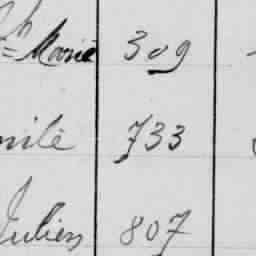 Marie 309
mile 733
Julien 807